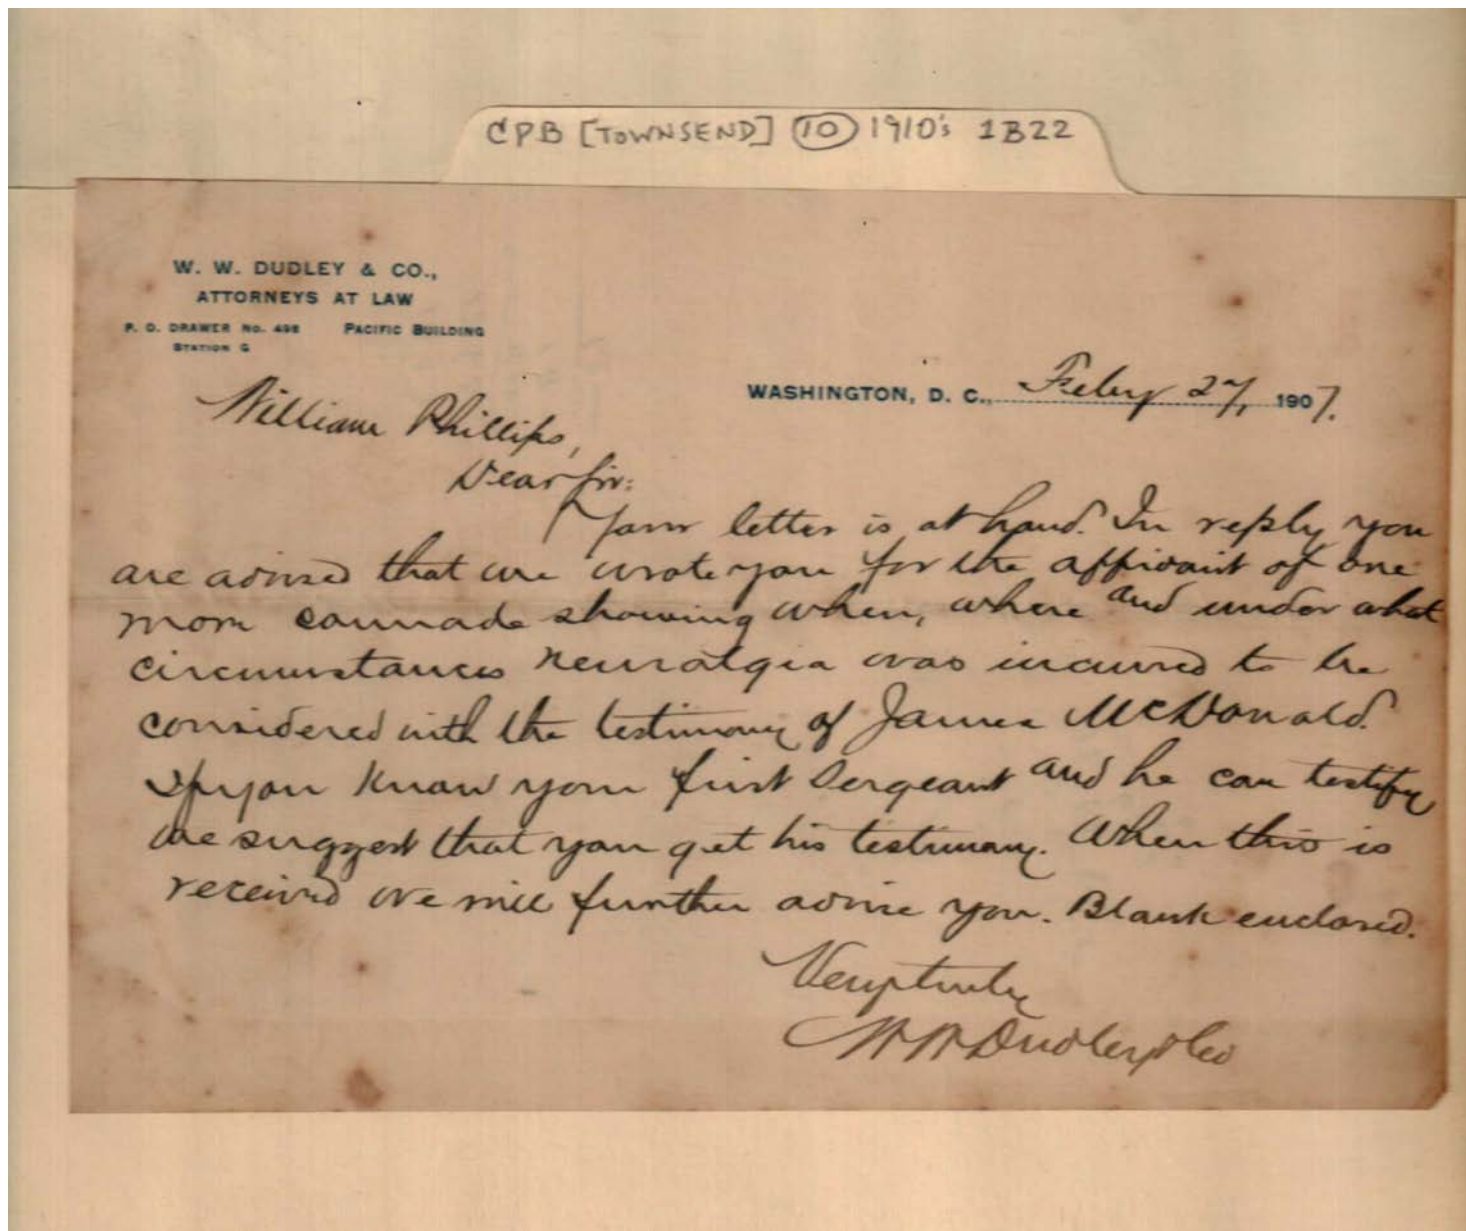 CPB [TOWNSEND] 10 1910's 1B22
W. W. DUDLEY & CO.,
ATTORNEYS AT LAW
P. O. DRAWER No. 498 PACIFIC BUILDING
STATION G
WASHINGTON, D. C., Feby 27, 1907.
William Phillips,
Dear Sir:
Your letter is at hand. In reply you
are advised that we wrote you for the affidavit of one
more comrade showing when, where and under what
circumstances neuralgia was incurred to be
considered with the testimony of James McDonald.
If you know your first Sergeant and he can testify
we suggest that you get his testimony. When this is
received we will further advise you. Blank enclosed.
Very truly
W W Dudley & Co